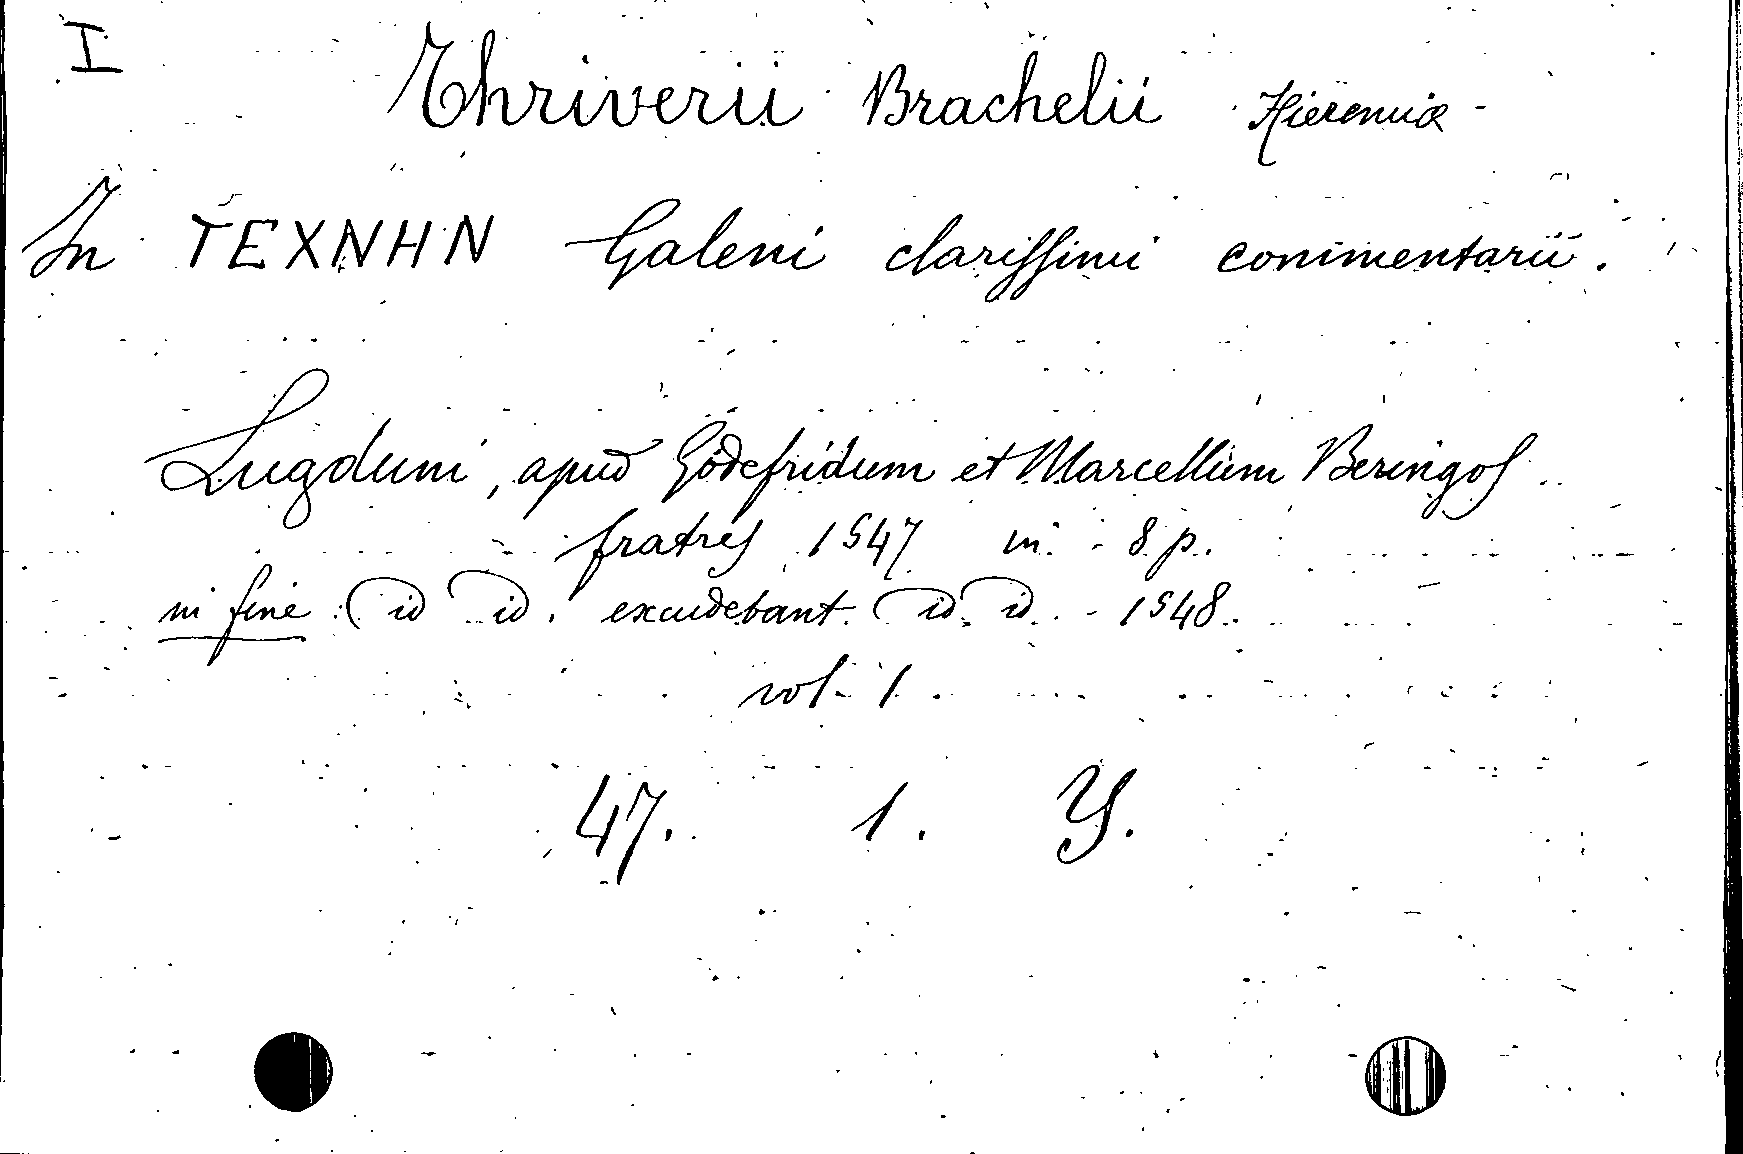 I
Thriverii Brachelii Hieremiæ -
In ΤΕΧΝΗΝ Galeni clarissimi commentarii.
Lugduni, apud Godefridum et Marcellum Beringos
fratres 1547 in - 8 p.
in fine: id id. excudebant id. id. - 1548.
vol - 1.
47. 1. Y.